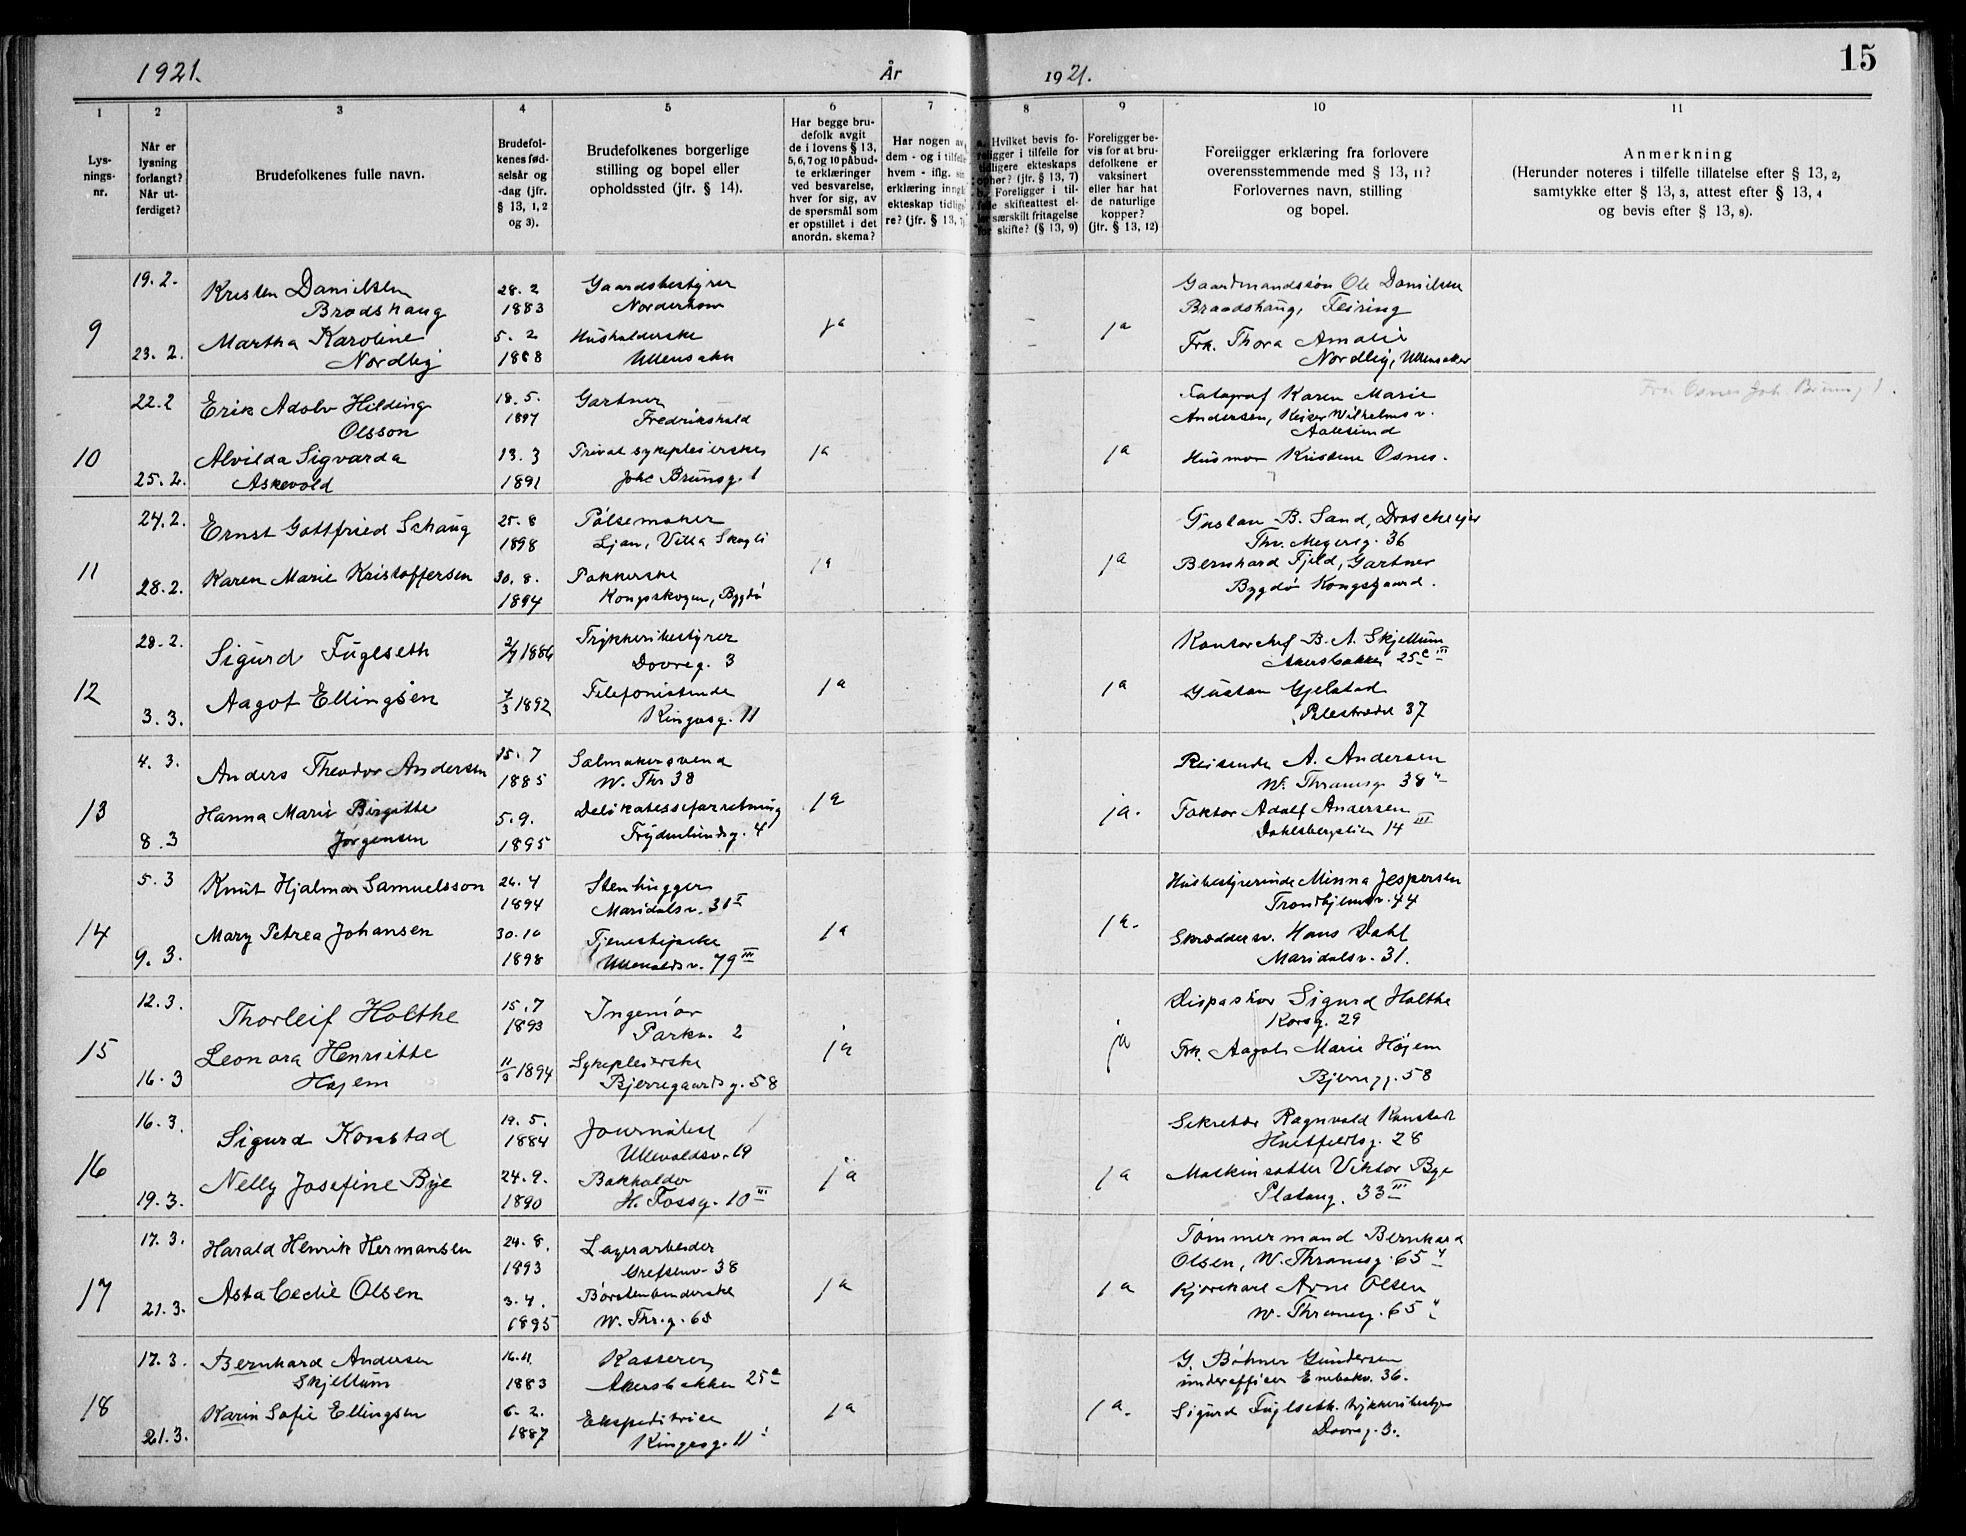 1921.
År
1921.
15
1
2
3
4
5
6
7
8
9
10
11
Lys-
nings-
nr.
Når er
lysning
forlangt?
Når ut-
ferdiget?
Brudefolkenes fulle navn.
Brudefol-
kenes fød-
selsår og
-dag (jfr.
§ 13, 1, 2
og 3).
Brudefolkenes borgerlige
stilling og bopel eller
opholdssted (jfr. § 14).
Har begge bru-
defolk avgit
de i lovens § 13,
5, 6, 7 og 10 påbud-
te erklæringer
ved besvarelse,
hver for sig, av
de spørsmål som
er opstillet i det
anordn. skema?
Har nogen av
dem - og i tilfelle
hvem - iflg. sin
erklæring inngå
ekteskap tidlige
re? (jfr. § 13, 7)
a. Hvilket bevis fo-
religger i tilfelle for
tidligere ekteskaps
ophør? (jfr. § 13, 7)
b. Foreligger i til-
felle skifteattest el-
ler særskilt fritagelse
for skifte? (§ 13, 9)
Foreligger be-
vis for at bru-
defolkene er
vaksinert
eller har hat
de naturlige
kopper?
(jfr. § 13, 12)
Foreiigger erklæring fra forlovere
overensstemmende med § 13, 11?
Forlovernes navn, stilling
og bopel.
Anmerkning
(Herunder noteres i tilfelle tillatelse efter § 13, 2,
samtykke efter § 13, 3, attest efter § 13, 4
og bevis efter § 13, 8).
9
19. 2.
23. 2.
Kristen Danielsen
Brodshaug
Martha Karoline
Nordby
28. 2
1883
5. 2
1888
Gaardsbestyrer
Norderhov
Husholderske
Ullensaker
ja
ja
Gaardmandssøn Ole Danielsen
Braadshaug, Feiring
Frk. Thora Amalie
Nordby, Ullensaker
10
22. 2
25. 2.
Erik Adolv Hilding
Olsson
Alvilda Sigvarda
Askevold
18. 5.
1897
13. 3
1891
Gartner
Fredrikshald
Privat sykepleierske
Johs Brunsg. 1
ja
ja
Fotograf Karen Marie
Andersen, Keiser Wilhelms v.
Aalesund
Husmor Kristene Osnes.
Fru Osnes Joh. Brunsg 1.
11
24. 2.
28. 2.
Ernst Gottfried Schaug
Karen Marie Kristoffersen
25. 8
1898
30. 8.
1894
Pølsemaker
Ljan, Villa Skogli
Pakkerske
Kongsskogen, Bygdø
ja
ja
Gustav B. Sand, Droscheeier
Thv. Meyersg. 36
Bernhard Fjeld, Gartner
Bygdø Kongsgaard.
12
28. 2.
3. 3.
Sigurd Fuglseth
Aagot Ellingsen
2/7 1886
7/3 1892
Trykkeribestyrer
Dovreg. 3
Telefonistinde
Kingosg. 11
ja
ja
Kontorchef B. A. Skjellum
Akersbakken 25c III
Gustav Gjelstad
Pilestrædet 37
13
4. 3.
8. 3
Anders Theodor Andersen
Hanna Marie Birgitte
Jørgensen
25. 7
1885
5. 9.
1895
Salmakersvend
W. Thr 38
Delikatesseforretning
Frydenlundsg. 4
ja
ja.
Reisende A. Andersen
W. Thranesg. 38 II
Faktor Adolf Andersen
Dahlsbergstien 14 III
14
5. 3
9. 3.
Knut Hjalmar Samuelsson
Mary Petrea Johansen
26. 4
1894
30. 10
1898
Stenhugger
Maridalsv. 31 I
Tjenestepike
Ullevaldsv. 79 III
ja
ja.
Husbestyrerinde Minna Jespersen
Trondhjemsv. 44
Skræddersv. Hans Dahl
Maridalsv. 31.
15
12. 3.
16. 3
Thorleif Holthe
Leonora Henriette
Højem
15. 7
1893
11/3 1894
Ingeniør
Parkv. 2
Sykepleierske
Bjerregaardsg. 58
ja
ja
Dispashør Sigurd Holthe
Korsg. 29
Frk. Aagot Marie Højem
Bjerregg. 58
16
16. 3.
19. 3.
Sigurd Konstad
Nelly Josefine Bye
19. 5.
1884
24. 9.
1890
Journalist
Ullevaldsv. 19
Bokholder
H. Fossg. 10 III
ja
ja
Sekretær Ragnvald Konstad
Huitfeldtsg. 28
Maskinsetter Viktor Bye
Platoug. 33 III
17
17. 3.
21. 3.
Harald Henrik Hermansen
Asta Cecilie Olsen
24. 8.
1893
3. 4.
1895
Lagerarbeider
Grefsenv. 38
Børstenbinderske
W. Thr.g. 65
ja
ja
Tømmermand Bernhard
Olsen, W. Thranesg. 65 II
Kjørekarl Arne Olsen
W. Thranesg. 65 II
18
17. 3.
21. 3.
Bernhard Andersen
Skjellum
Karin Sofie Ellingsen
16. 11.
1883
6. 2.
1887
Kasserer
Akersbakken 25c
Ekspeditrice
Kingosg. 11
ja
ja.
G. Bøhmer Gundersen
underofficer Enebakv. 36.
Sigurd Fuglseth. trykkeribestyr
Dovreg. 3.